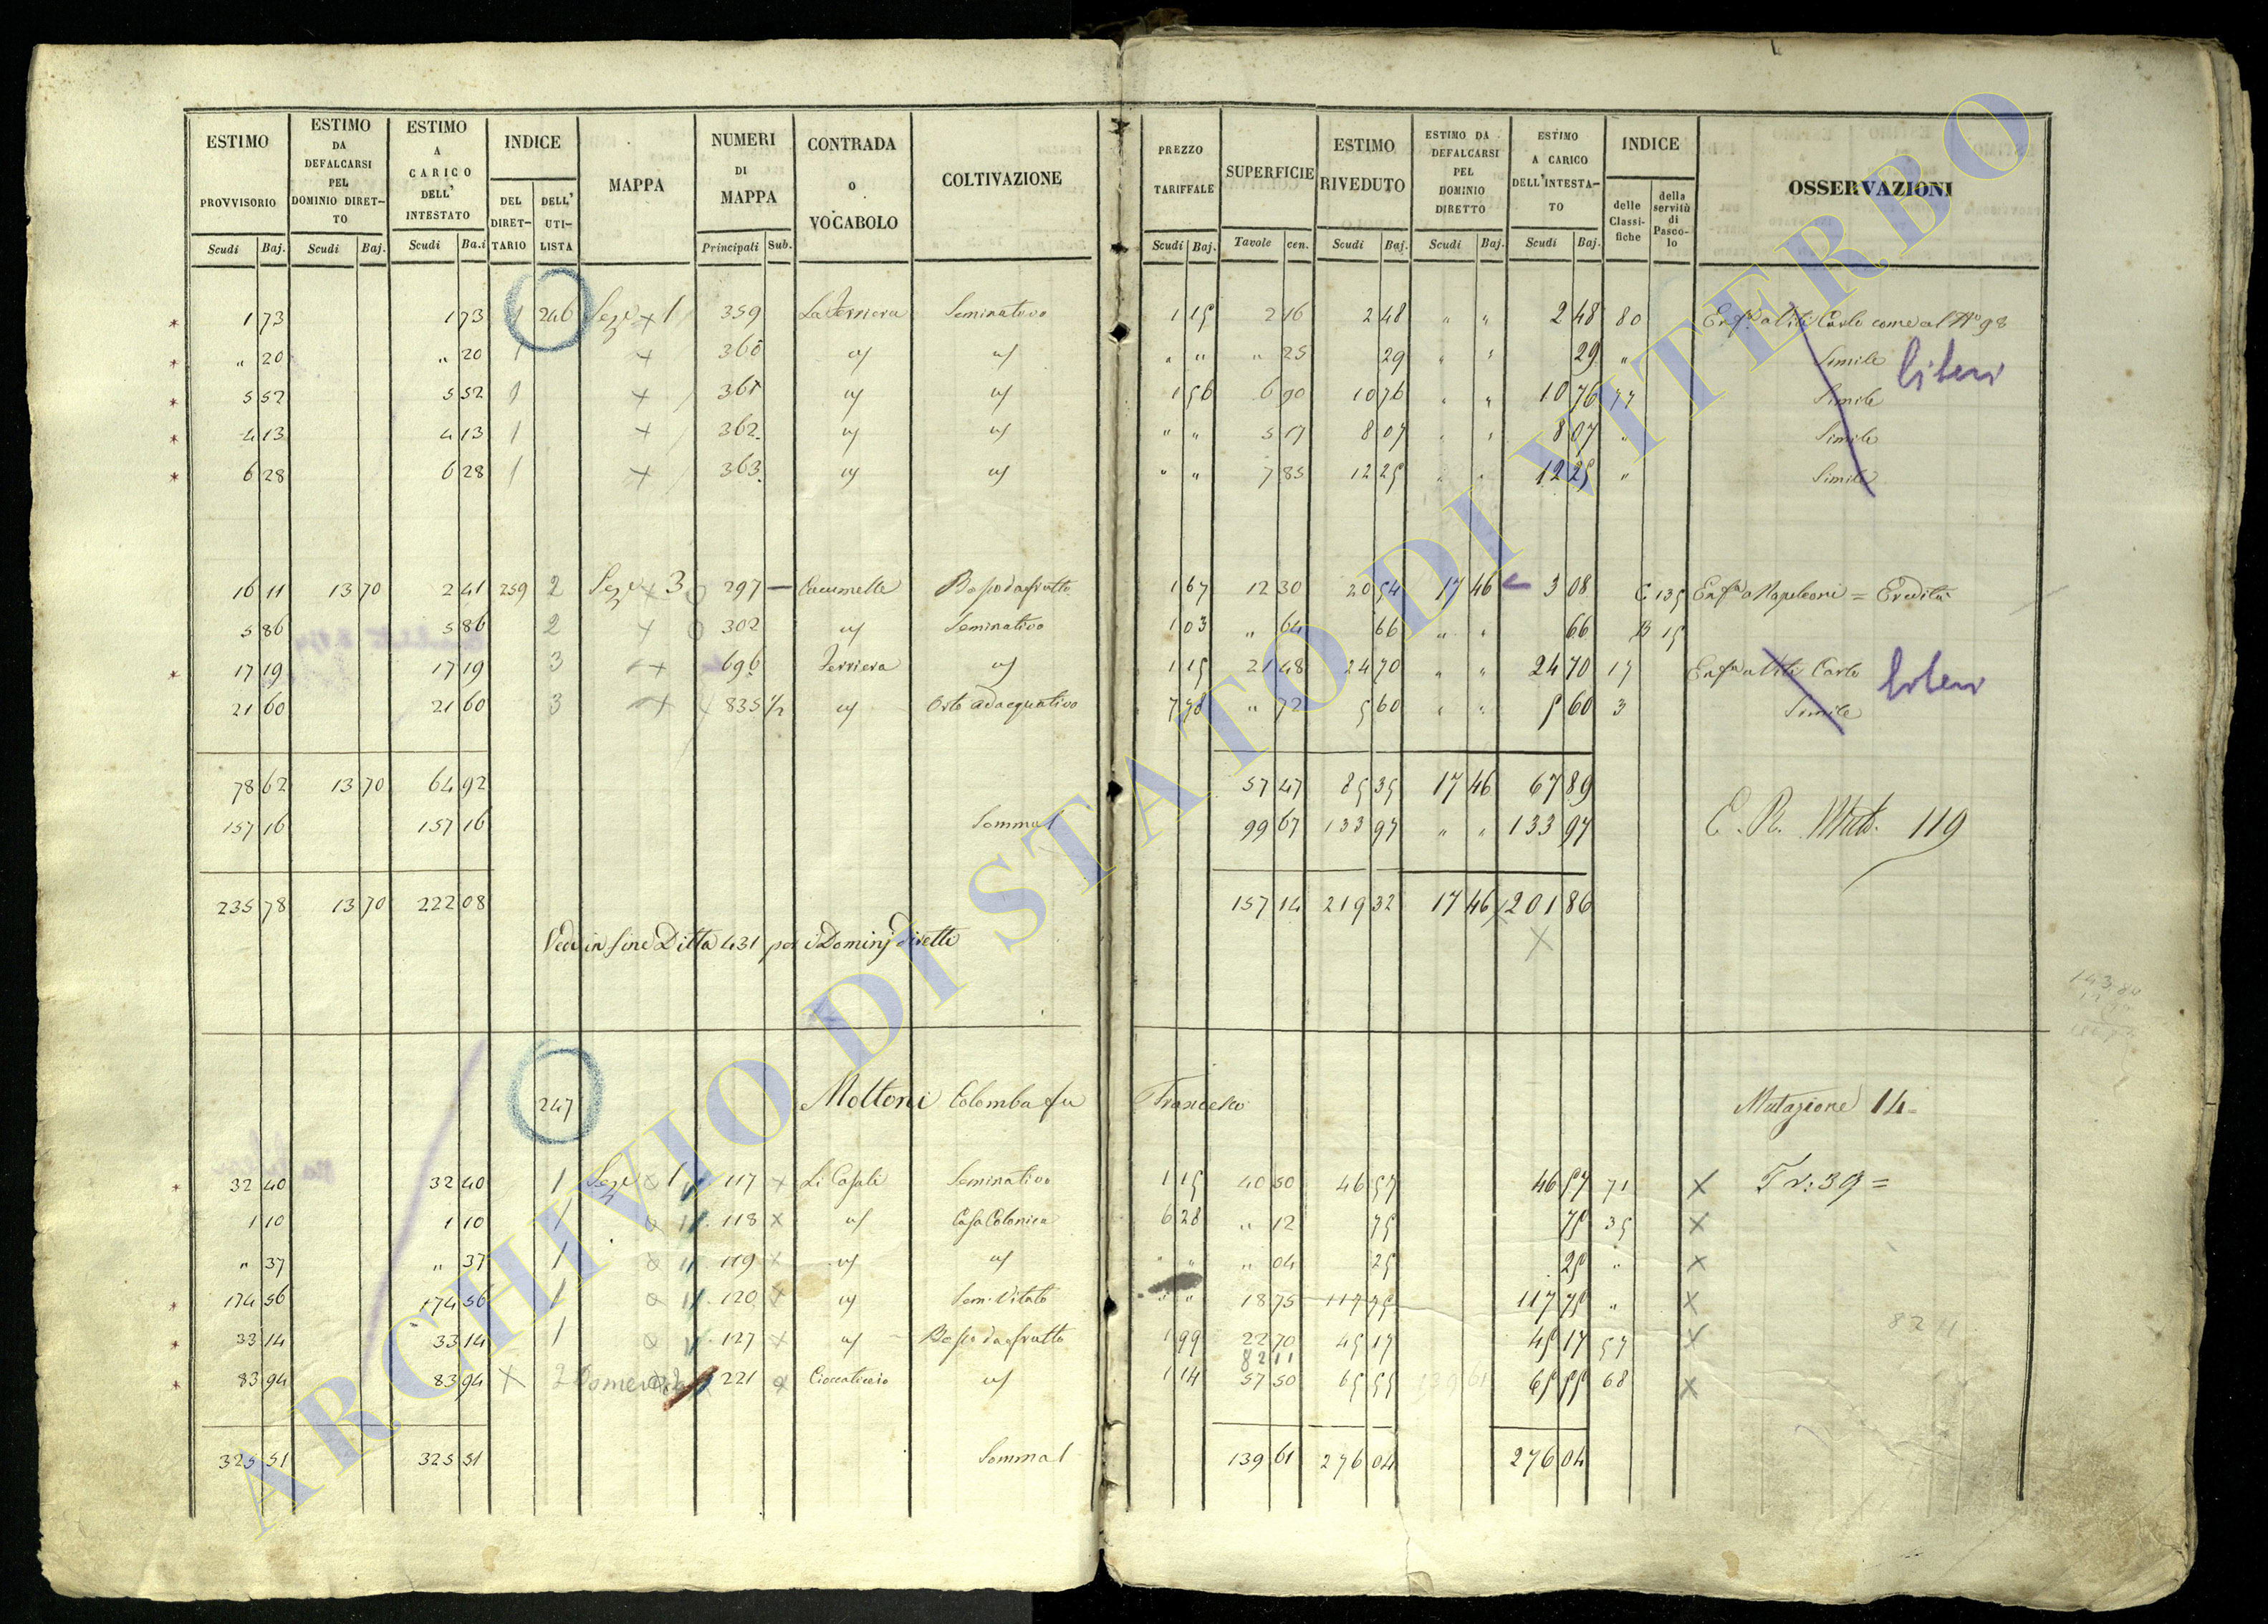 ESTIMO PROVVISORIO
ESTIMO DA DEFALCARSI PEL DOMINIO DIRET-TO
ESTIMO A CARICO DELL' INTESTATO
INDICE
DEL DIRET-TARIO
DELL' UTI-LISTA
MAPPA
NUMERI DI MAPPA
CONTRADA O VOCABOLO
COLTIVAZIONE
PREZZO TARIFFALE
SUPERFICIE
ESTIMO RIVEDUTO
ESTIMO DA DEFALCARSI PEL DOMINIO DIRETTO
ESTIMO A CARICO DELL'INTESTA-TO
INDICE
delle Classi-fiche
della servitù di Pasco-lo
OSSERVAZIONI
Scudi Baj. Scudi Baj. Scudi Ba.i Principali Sub. Scudi Baj. Tavole cen. Scudi Baj. Scudi Baj. Scudi Baj.
1 73 1 73 1 246 Seze 1 359 La Ferriera Seminativo 1 15 2 16 2 48 " " 2 48 80 Enfa a Liti Carlo come al No 98
" 20 " 20 1 360 " " " 25 29 " " 29 " Simile liberi
5 52 5 52 1 361 1 56 6 90 10 76 " " 10 76 77 Simile
4 13 4 13 1 362 " " 5 17 8 07 " " 8 07 " Simile
6 28 6 28 1 363 " " 7 85 12 25 " " 12 25 " Simile
16 11 13 70 2 41 259 2 Seze 3 297 Cucumella Bosso da frutto 1 67 12 30 20 54 17 46 3 08 C 135 Enfa a Napoleoni = Eredità
5 86 5 86 2 302 Seminativo 1 03 " 64 66 " " 66 B 15
17 19 17 19 3 696 Ferriera 1 15 21 48 24 70 " " 24 70 17 Enfa a Liti Carlo liberi
21 60 21 60 3 835 1/2 Orto adacquativo 7 78 " 72 5 60 " " 5 60 3 Simile
78 62 13 70 64 92 57 47 85 35 17 46 67 89
157 16 157 16 Somma 1 99 67 133 97 " " 133 97 C. R. Mut. 119
235 78 13 70 222 08 157 14 219 32 17 46 201 86
Vedi in fine Ditta 431 per i Dominj diretti
247 Moltoni Colomba fu Francesco Mutazione 14=
32 40 32 40 1 Seze 1 117 Li Casali Seminativo 1 15 40 50 46 57 46 57 71 Tr: 39 =
1 10 1 10 1 118 Casa Colonica 6 28 " 12 75 75 35
" 37 " 37 1 119 " " " 04 25 25 "
174 56 174 56 1 120 Sem. Vitato " " 18 75 117 75 117 75 "
33 14 33 14 1 127 Bosso da frutto 1 99 22 70 45 17 45 17 57
82 11
83 94 83 94 2 221 1 14 57 50 65 55 65 55 68
325 51 325 51 Somma 1 139 61 276 04 276 04
ARCHIVIO DI STATO DI VITERBO